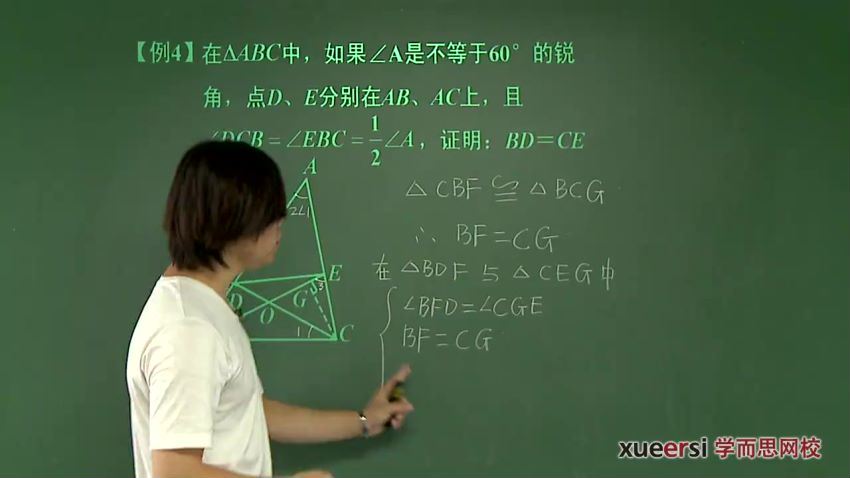 【例4】在ΔABC中，如果∠A是不等于60°的锐
角，点D、E分别在AB、AC上，且
∠DCB=∠EBC=1/2∠A，证明：BD=CE
A
2∠1
△CBF≌△BCG
∴ BF=CG
在△BDF与△CEG中
E
D
G
3
O
∠BFD=∠CGE
1
C
BF=CG
xueersi 学而思网校